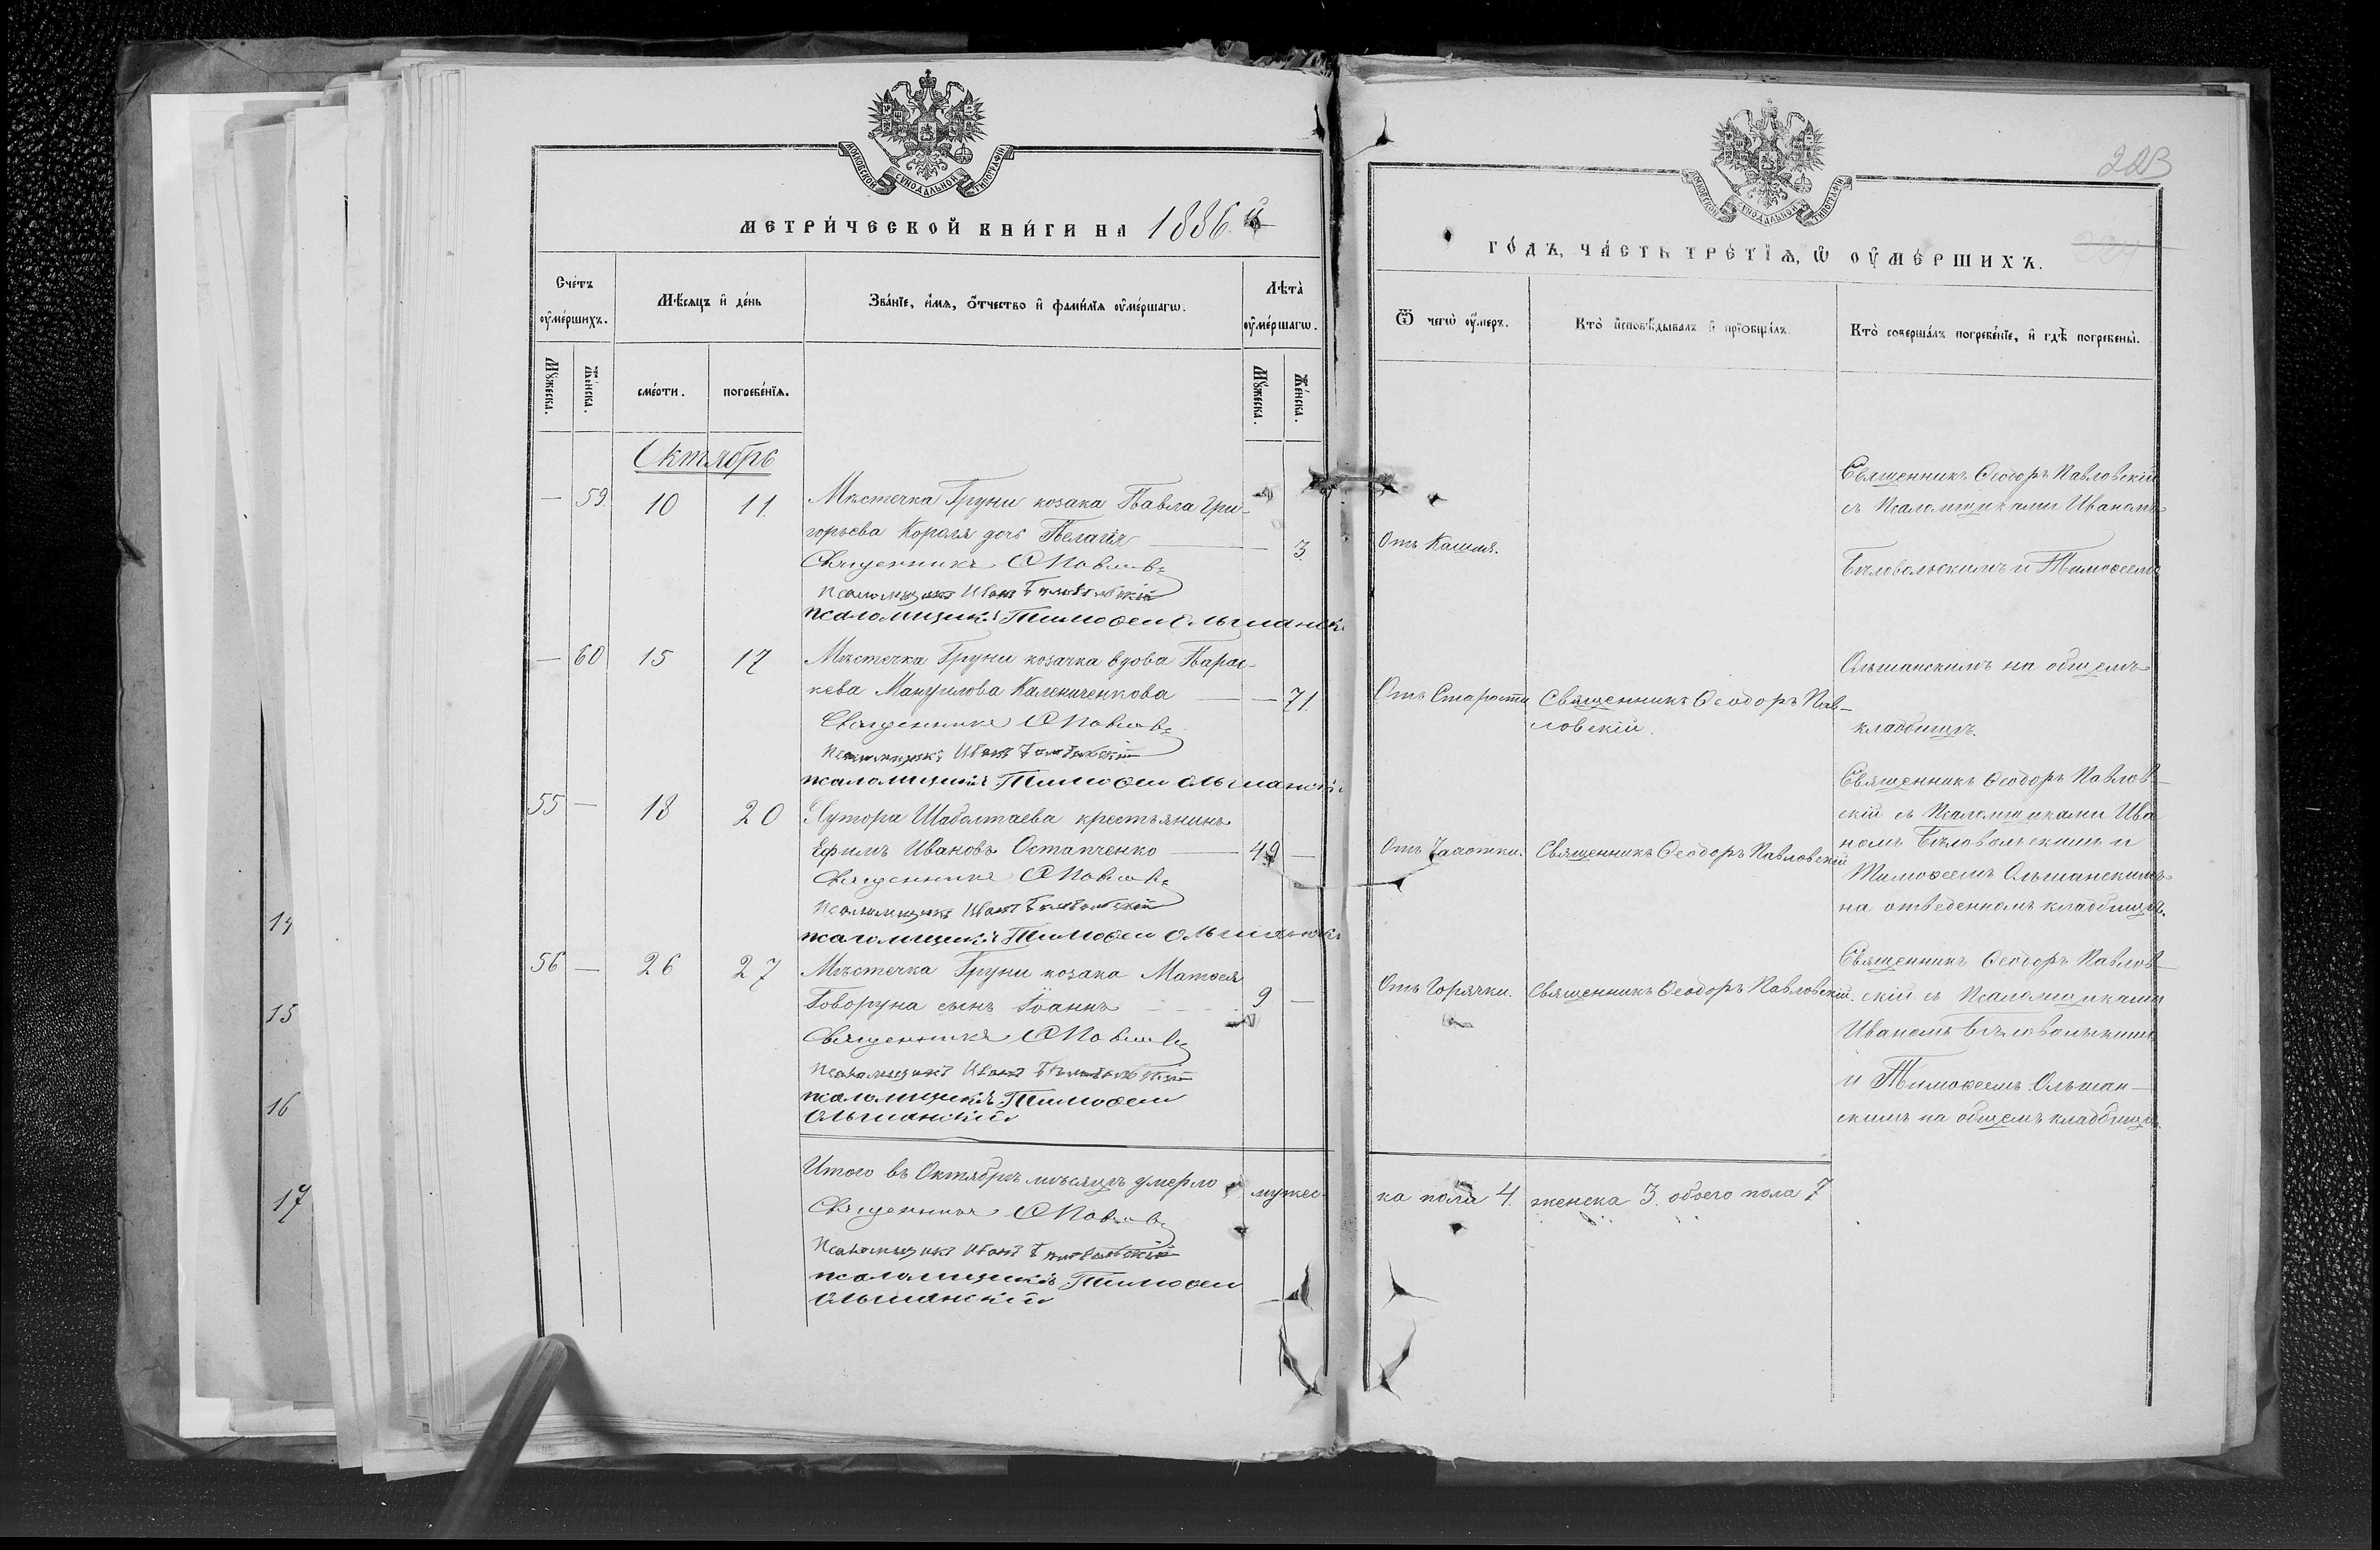 МОСКОВСКОЙ СѴНОДАЛЬНОЙ ТИПОГРАФІИ
МЕТРИ́ЧЕСКОЙ КНИ́ГИ НА 1886 й
Сче́тъ ᲂу҆ме́ршихъ.
Мѣ́сяцъ и҆ де́нь
Зва́нїе, и҆́мѧ, ѻ҆́тчество и҆ фами́лїѧ ᲂу҆ме́ршагѡ.
Лѣта̀ ᲂу҆ме́ршагѡ.
Мꙋ́жеска.
Же́нска.
сме́рти.
погребе́нїѧ.
Мꙋ́жеска.
Же́нска.
Октябрь
— 59. 10 11. Мѣстечка Груни козака Павла Гри-
горьева Короля дочь Пелагія — 3.
Священникъ Ѳ Павловс
Псаломщикъ Иванъ Бѣловольскій
псаломщикъ Тимофей Ольшанск
— 60 15 17 Мѣстечка Груни козачка вдова Парас-
кева Мануилова Калениченкова — — 71.
Священникъ Ѳ Павловс
Псаломщикъ Иванъ Бѣловольскій
псаломщикъ Тимофей Ольшанскі
55 — 18 20 Хутора Шаболтаева крестьянинъ
Ефимъ Ивановъ Остапченко — 49 —
Священникъ Ѳ Павловс
Псаломщикъ Иванъ Бѣловольскій
псаломщикъ Тимофей Ольшанск
56 — 26 27 Мѣстечка Груни козака Матѳея
Говоруна сынъ Іоаннъ 9 —
Священникъ Ѳ Павловс
Псаломщикъ Иванъ Бѣловольскій
псаломщикъ Тимофей
Ольшанскій
Итого въ Октябрѣ мѣсяцѣ умерло мужес-
Священникъ Ѳ Павловс
Псаломщикъ Иванъ Бѣловольскій
псаломщикъ Тимофей
Ольшанскій
14
15
16
17
МОСКОВСКОЙ СѴНОДАЛЬНОЙ ТИПОГРАФІИ
223
224
ГО́ДЪ, ЧА́СТЬ ТРЕ́ТІѦ, Ѡ҆ ОУ҆МЕ́РШИХЪ.
Ѿ чегѡ̀ ᲂу҆́меръ.
Кто̀ и҆сповѣ́дывалъ и҆ прїѡбща́лъ.
Кто̀ соверша́лъ погребе́нїе, и҆ гдѣ̀ погребены̀.
Отъ Кашля.
Священникъ Ѳеодоръ Павловскій
съ Псаломщиками Иваномъ
Бѣловольскимъ и Тимоѳеемъ
Ольшанскимъ на общемъ
кладбищѣ.
Отъ Старости Священникъ Ѳеодоръ Пав-
ловскій.
Отъ Чахотки. Священникъ Ѳеодоръ Павловскій
Священникъ Ѳеодоръ Павлов-
скій съ Псаломщиками Ива
номъ Бѣловольскимъ и
Тимоѳеемъ Ольшанскимъ
на отведенномъ кладбищѣ.
Отъ Горячки. Священникъ Ѳеодоръ Павловскій.
Священникъ Ѳеодоръ Павлов-
скій съ Псаломщиками
Иваномъ Бѣловольскимъ
и Тимоѳеемъ Ольшан-
скимъ на общемъ кладбищѣ.
ка пола 4. женска 3. обоего пола 7